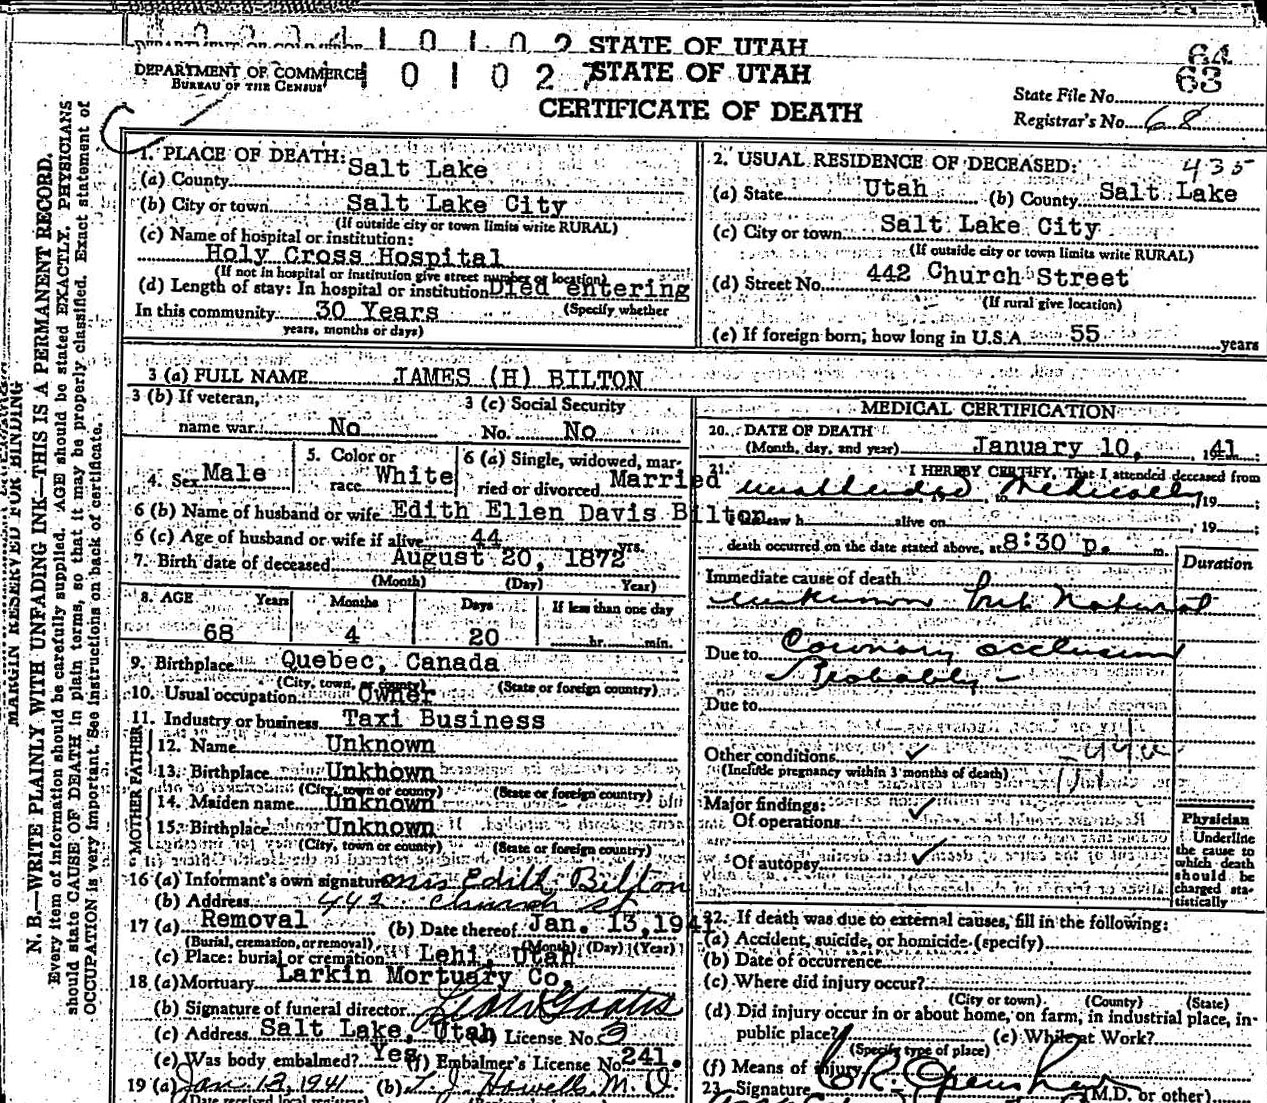 STATE OF UTAH
64
DEPARTMENT OF COMMERCE
BUREAU OF THE CENSUS
1 0 1 0 2 7
STATE OF UTAH
63
CERTIFICATE OF DEATH
State File No.
Registrar's No. 68
MARGIN RESERVED FOR BINDING
N. B.—WRITE PLAINLY WITH UNFADING INK—THIS IS A PERMANENT RECORD.
Every item of information should be carefully supplied. AGE should be stated EXACTLY. PHYSICIANS
should state CAUSE OF DEATH in plain terms, so that it may be properly classified. Exact statement of
OCCUPATION is very important. See instructions on back of certificate.
1. PLACE OF DEATH:
(a) County Salt Lake
(b) City or town Salt Lake City
(If outside city or town limits write RURAL)
(c) Name of hospital or institution:
Holy Cross Hospital
(If not in hospital or institution give street number or location)
(d) Length of stay: In hospital or institution Died entering
In this community 30 Years (Specify whether
years, months or days)
2. USUAL RESIDENCE OF DECEASED: 435
(a) State Utah (b) County Salt Lake
(c) City or town Salt Lake City
(If outside city or town limits write RURAL)
(d) Street No. 442 Church Street
(If rural give location)
(e) If foreign born, how long in U.S.A. 55 years
3 (a) FULL NAME JAMES (H) BILTON
3 (b) If veteran, 3 (c) Social Security
name war. No No. No
4. Sex Male 5. Color or race White 6 (a) Single, widowed, married or divorced Married
6 (b) Name of husband or wife Edith Ellen Davis Bilton
6 (c) Age of husband or wife if alive 44 yrs.
7. Birth date of deceased August 20, 1872
(Month) (Day) Year)
8. AGE Years Months Days If less than one day
68 4 20 hr. min.
9. Birthplace Quebec, Canada
(City, town, or county) (State or foreign country)
10. Usual occupation Owner
11. Industry or business Taxi Business
FATHER
12. Name Unknown
13. Birthplace Unkhown
(City, town or county) (State or foreign country)
MOTHER
14. Maiden name Unknown
15. Birthplace Unknown
(City, town or county) (State or foreign country)
16 (a) Informant's own signature Mrs Edith Bilton
(b) Address 442 Church St
17 (a) Removal (b) Date thereof Jan. 13, 1941
(Burial, cremation, or removal) (Month) (Day) (Year)
(c) Place: burial or cremation Lehi, Utah
18 (a) Mortuary Larkin Mortuary Co.
(b) Signature of funeral director
(c) Address Salt Lake, Utah License No. 3
(e) Was body embalmed? Yes (f) Embalmer's License No. 241.
19 (a) Jan 12, 1941 (b) Howells M. D.
(Date received local registrar)
MEDICAL CERTIFICATION
20. DATE OF DEATH
(Month, day, and year) January 10, 1941
21. I HEREBY CERTIFY, That I attended deceased from
unattended, to Medically, 19 ;
saw h alive on , 19 ;
death occurred on the date stated above, at 8:30 p. m.
Duration
Immediate cause of death
unknown but Natural
Due to Coronary occlusion
Probably -
Due to
Other conditions ✓
(Include pregnancy within 3 months of death)
Major findings:
Of operations ✓
Of autopsy ✓
Physician
Underline
the cause to
which death
should be
charged sta-
tistically
22. If death was due to external causes, fill in the following:
(a) Accident, suicide, or homicide (specify)
(b) Date of occurrence
(c) Where did injury occur?
(City or town) (County) (State)
(d) Did injury occur in or about home, on farm, in industrial place, in-
public place? (e) While at Work?
(Specify type of place)
(f) Means of injury
23. Signature (M.D. or other)